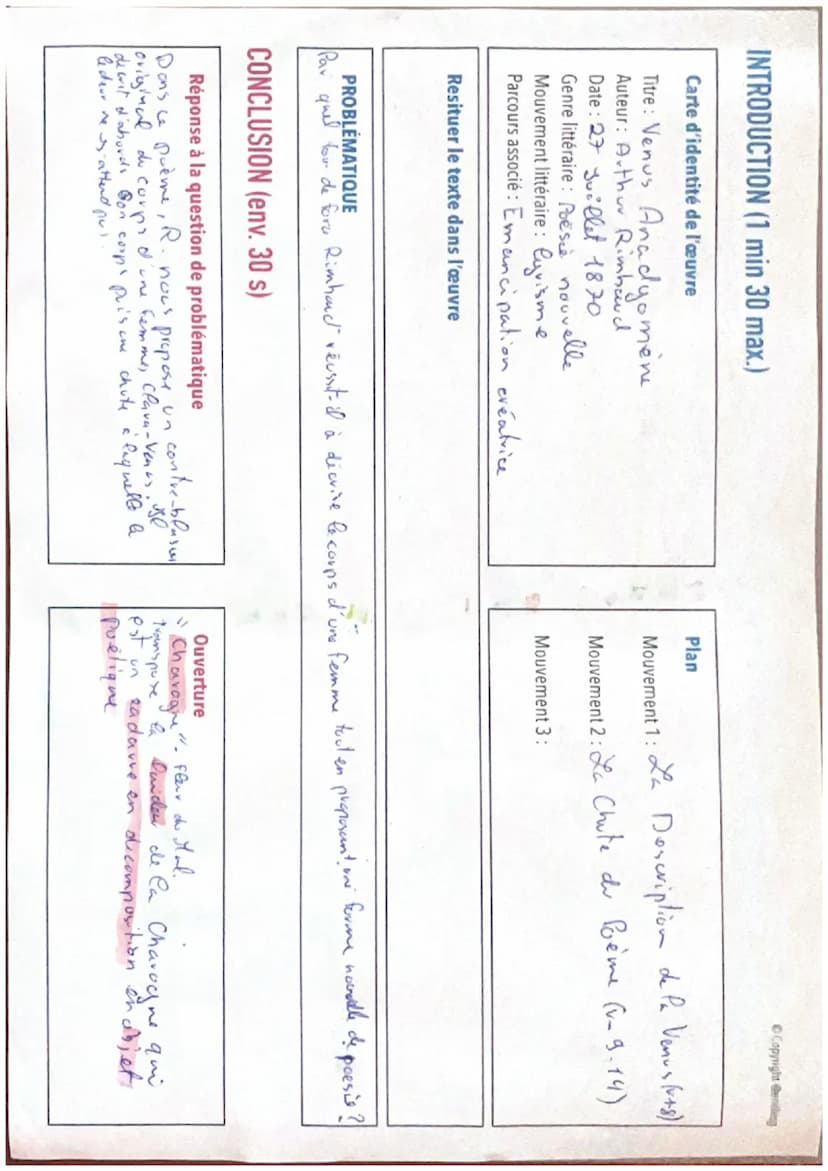 © Copyright
INTRODUCTION (1 min 30 max.)
Carte d'identité de l'œuvre
Titre : Venus Anadyomène
Auteur : Arthur Rimbaud
Date : 27 Juillet 1870
Genre littéraire : Poésie nouvelle
Mouvement littéraire : lyrisme
Parcours associé : Emancipation créatrice
Plan
Mouvement 1 : La Description de la Venus (v1-8)
Mouvement 2 : La Chute du Poème (v-9-14)
Mouvement 3 :
Resituer le texte dans l'œuvre
PROBLÉMATIQUE
Par quel tour de force Rimbaud réussit-il à décrire le corps d'une femme tout en proposant une forme nouvelle de poesie ?
CONCLUSION (env. 30 s)
Réponse à la question de problématique
Dans ce poème, R. nous propose un contre-blason
original du corps d'une femme, Clara-Venus. Il
décrit d'abords son corps puis une chute à laquelle
le lecteur ne s'attend pas.
Ouverture
"Charogne" - Fleur du Mal.
transpose la de la Charogne qui
est un cadavre en décomposition en objet
poétique